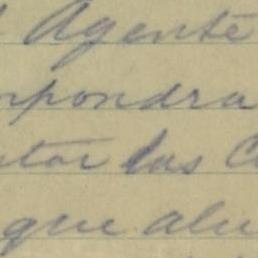 Agente
pondra
tar las C
que alu